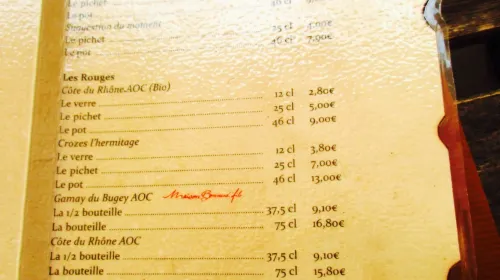 Le pichet
Le pot
Suggestion du moment 25 cl 4,00€
Le pichet 46 cl 7,90€
Le pot
Les Rouges
Côte du Rhône AOC (Bio)
Le verre 12 cl 2,80€
Le pichet 25 cl 5,00€
Le pot 46 cl 9,00€
Crozes l'hermitage
Le verre 12 cl 3,80€
Le pichet 25 cl 7,00€
Le pot 46 cl 13,00€
Gamay du Bugey AOC Maison
La 1/2 bouteille 37,5 cl 9,10€
La bouteille 75 cl 16,80€
Côte du Rhône AOC
La 1/2 bouteille 37,5 cl 9,10€
La bouteille 75 cl 15,80€